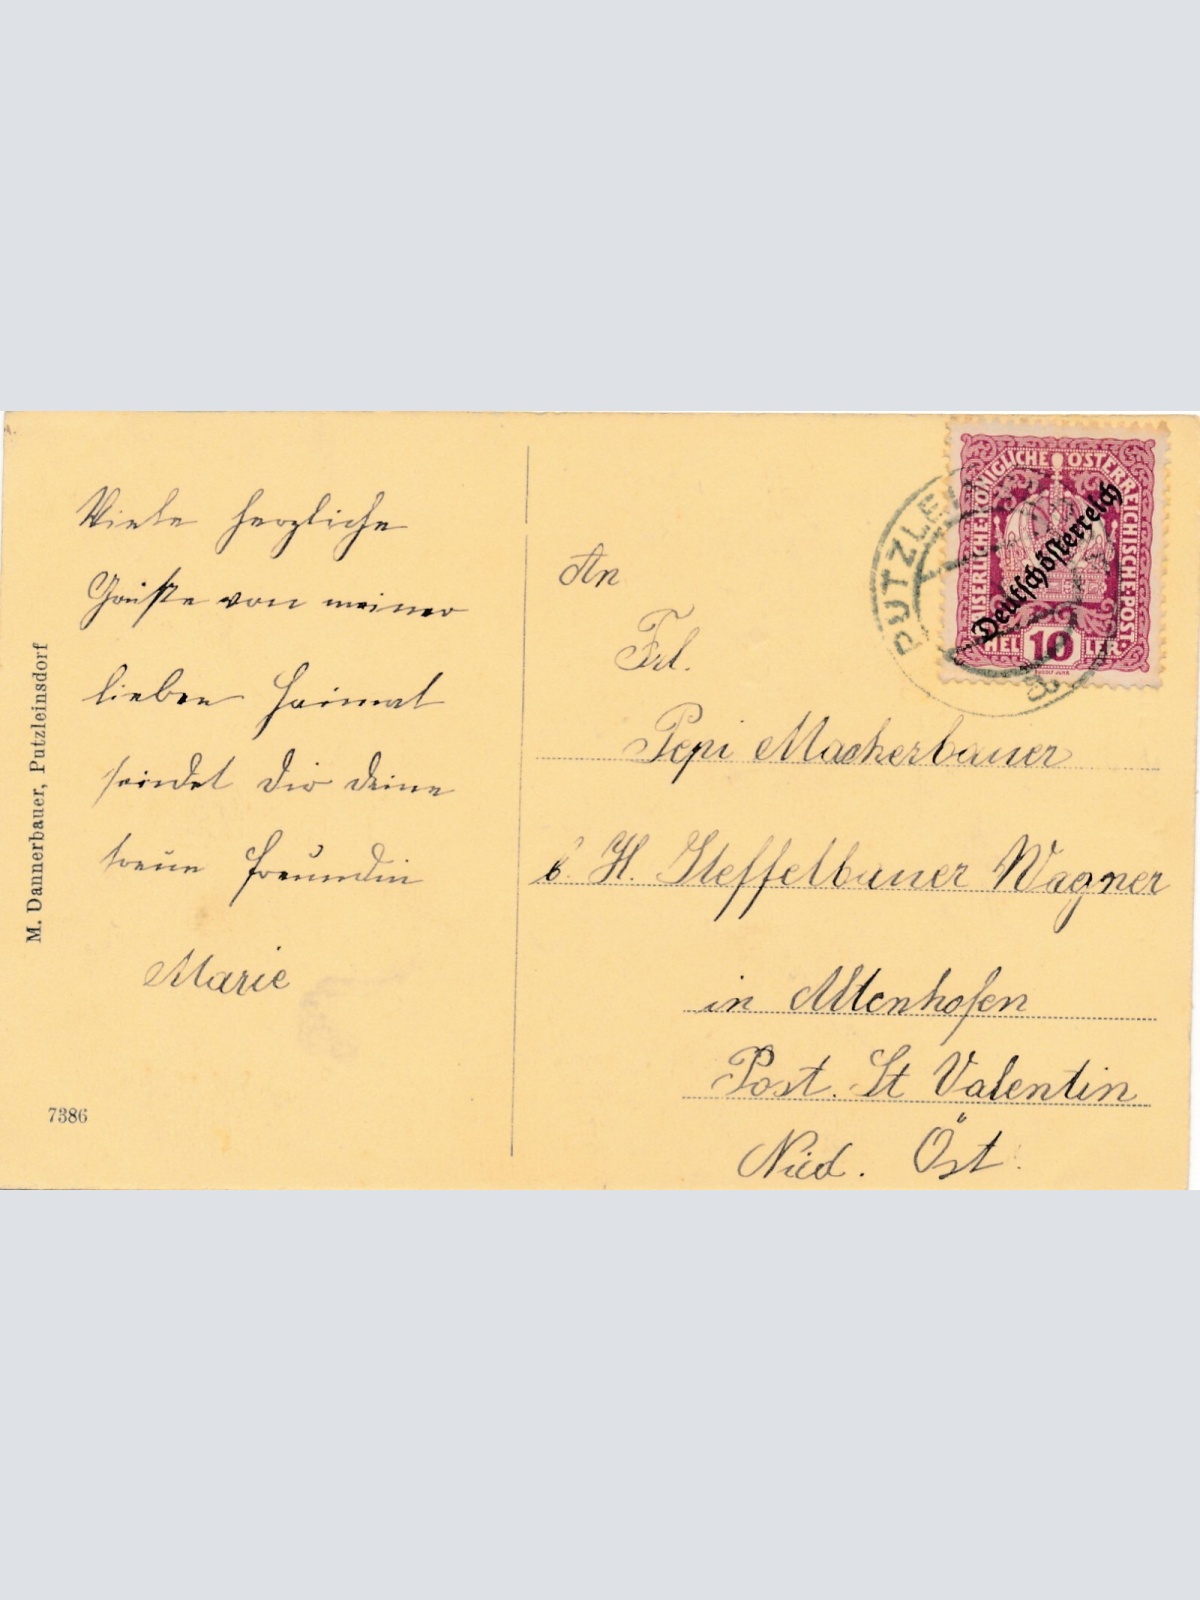 Viele herzliche
Grüße von meiner
lieben Heimat
sendet dir deine
treue Freundin
Marie
M. Dannerbauer, Putzleinsdorf
7386
An
Frl.
Pepi Mackerbauer
b. H. Steffelbauer Wagner
in Altenhofen
Post. St Valentin
Nied. Öst.
KAISERLICHE·KÖNIGLICHE ÖSTERREICHISCHE·POST·
Deutschösterreich
HEL 10 LER
RUDOLF JUNK
PUTZLEI